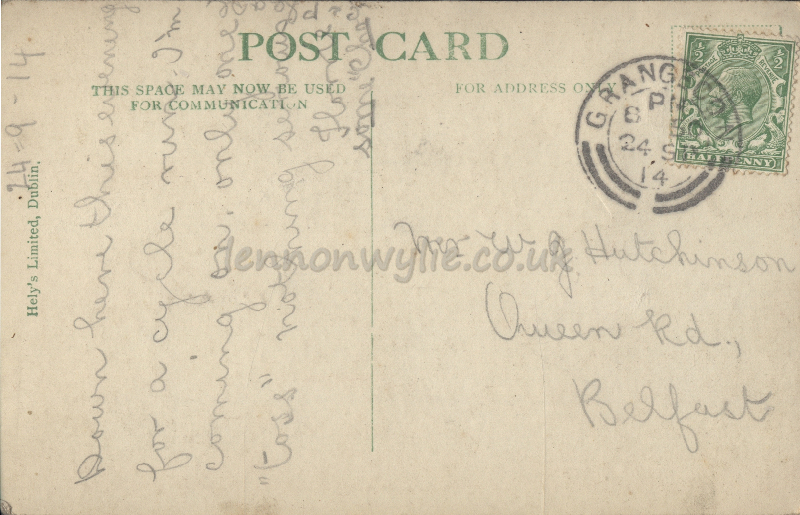 POST CARD
THIS SPACE MAY NOW BE USED
FOR COMMUNICATION
FOR ADDRESS ONLY
Hely's Limited, Dublin.
24-9-14
Down here this evening
for a cycle run. I'm
coming on, only one
"toss" nothing serious
GRANGE
8 PM
24 SP
14
HALFPENNY
½
½
POSTAGE
REVENUE
Mr W. J. Hutchinson
Queen Rd.,
Belfast
lennonwylie.co.uk